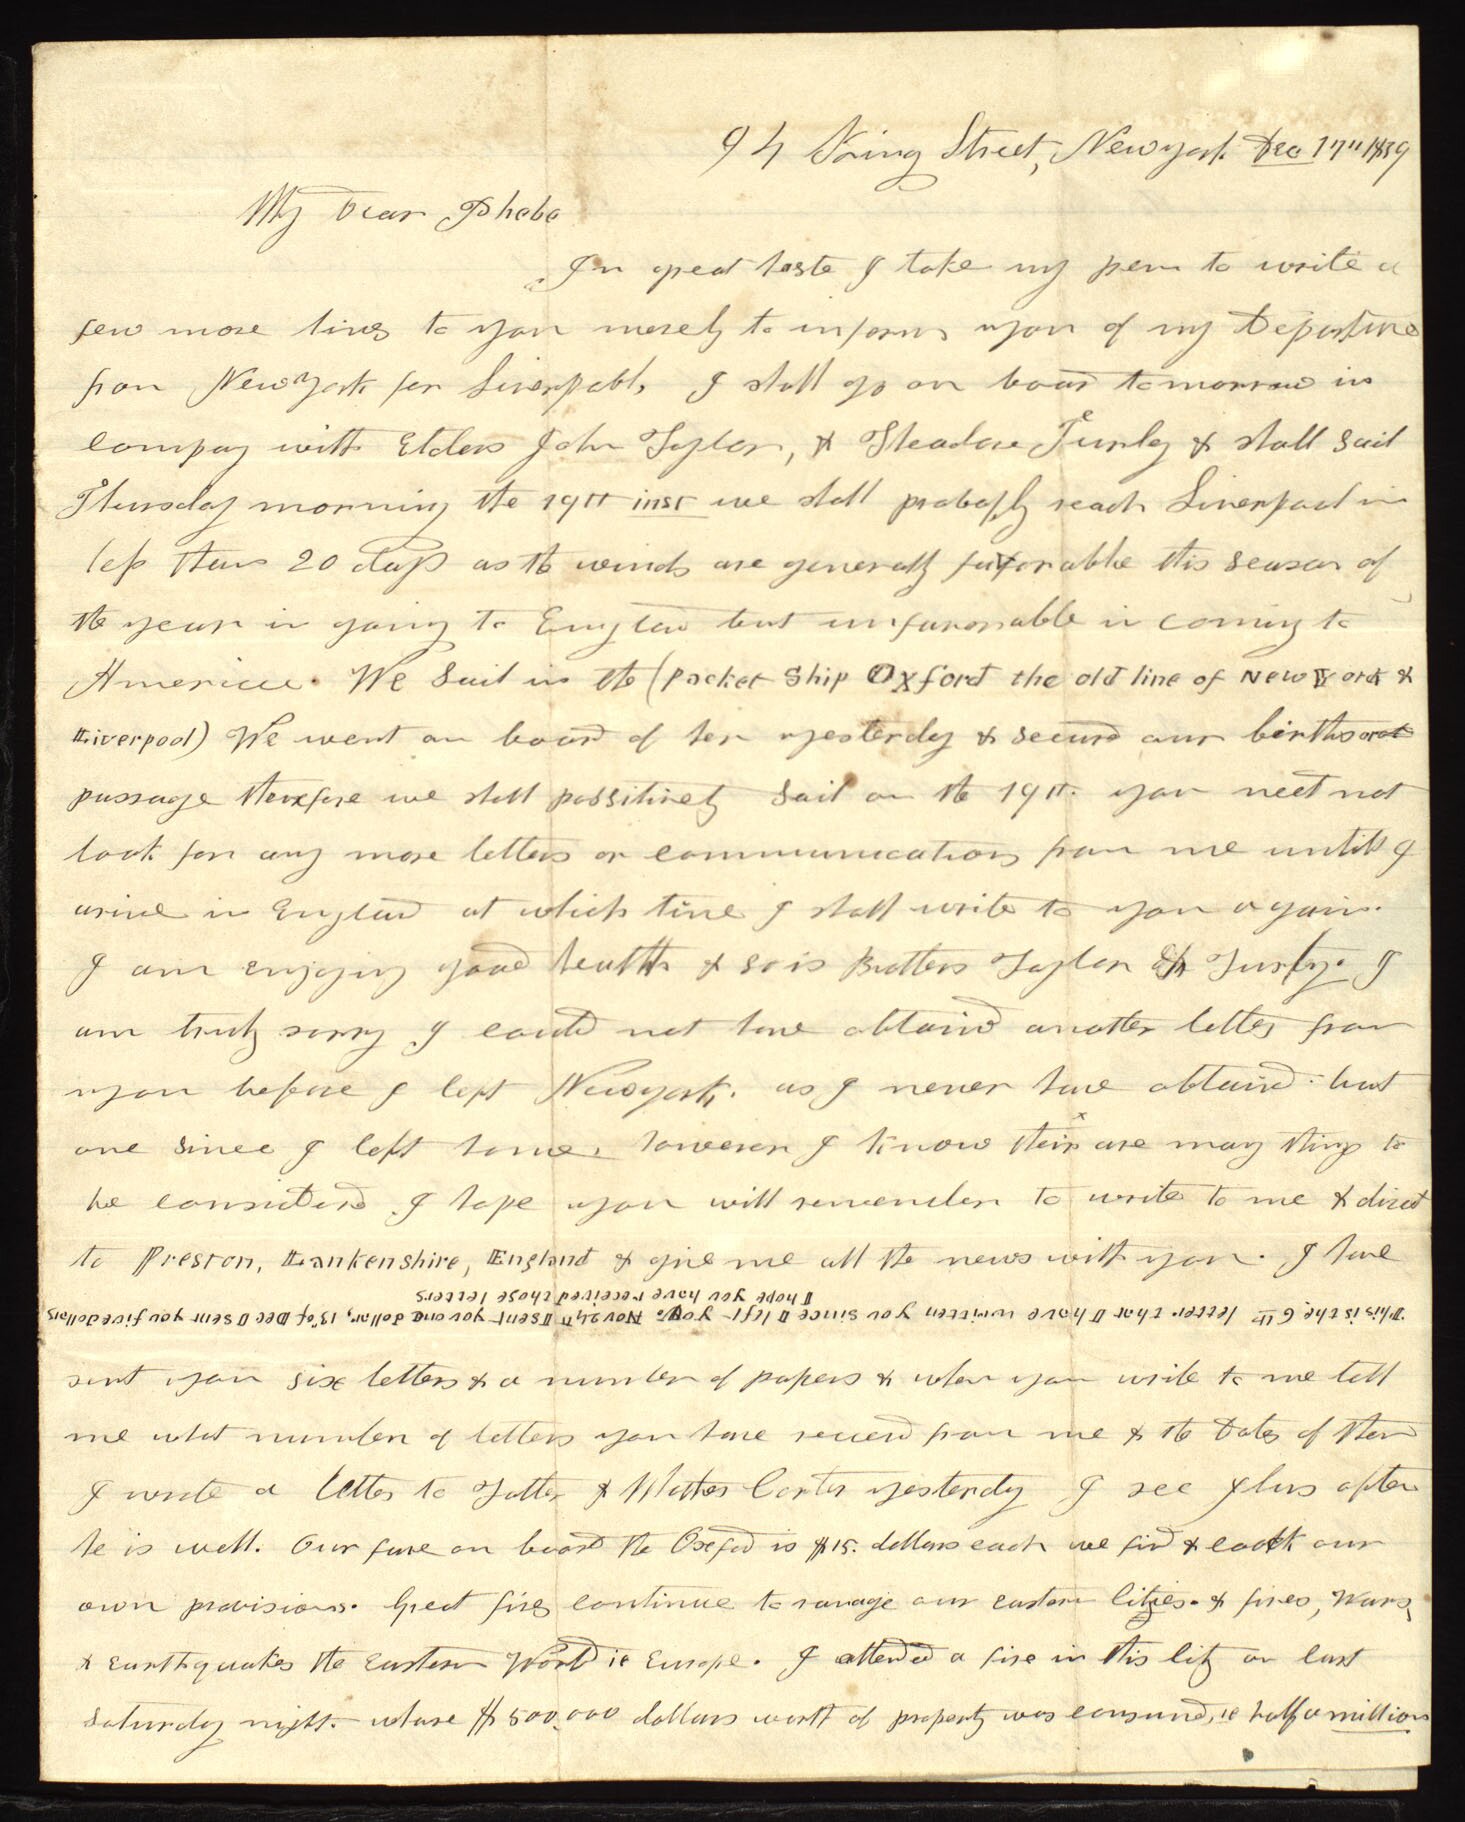 94 King Street, Newyork Dec 17th 1839
My Dear Phebe
In great haste I take my pen to write a
few more lines to you merely to inform you of my Departure
from New York for Liverpool, I shall go on board tomorrow in
compay with Elders John Taylor, & Theadore Turley & shall sail
Thursday morning the 19th inst we shall probably reach Liverpool in
less than 20 days as the winds are generally faivorable this season of
the year in going to England but unfavorable in coming to
America. We Sail in the (Packet Ship Oxford the old line of New York &
Liverpool) We went on board of her yesterday & secured our births
passage therefore we shall possitively Sail on the 19th. you need not
look for any more letters or communications from me untill I
arive in England at which time I shall write to you again.
I am enjoying good health & so is Brothers Taylor & Turley. I
am truly sorry I could not have obtaind another letter from
you before I left Newyork. as I never have obtaind but
one since I left home, however I know their are many things to
be considerd I hope you will remember to write to me & direct
to Preston, Lankenshire, England & give me all the news with you. I have
This is the 6th letter that I have written you since I left you. Nov 24th I sent you one dollar, 13th of Dec I sent you five dollars
I hope you have received those letters
sent you six letters & a number of papers & when you write to me tell
me what number of letters you have receed from me & the Dates of them
I wrote a letter to Father & Mother Carter yesterday I see Ilus often
he is well. Our fare on board the Oxford is $15. dollars each we find & cook our
own provisions. Great fires continue to ravage our eastern Cities. & fires, Wars,
& earthquakes the eastern World ie Europe. I attended a fire in this City on last
Saturday night. whare $500,000 dollars worth of property was consumed, ie half a million